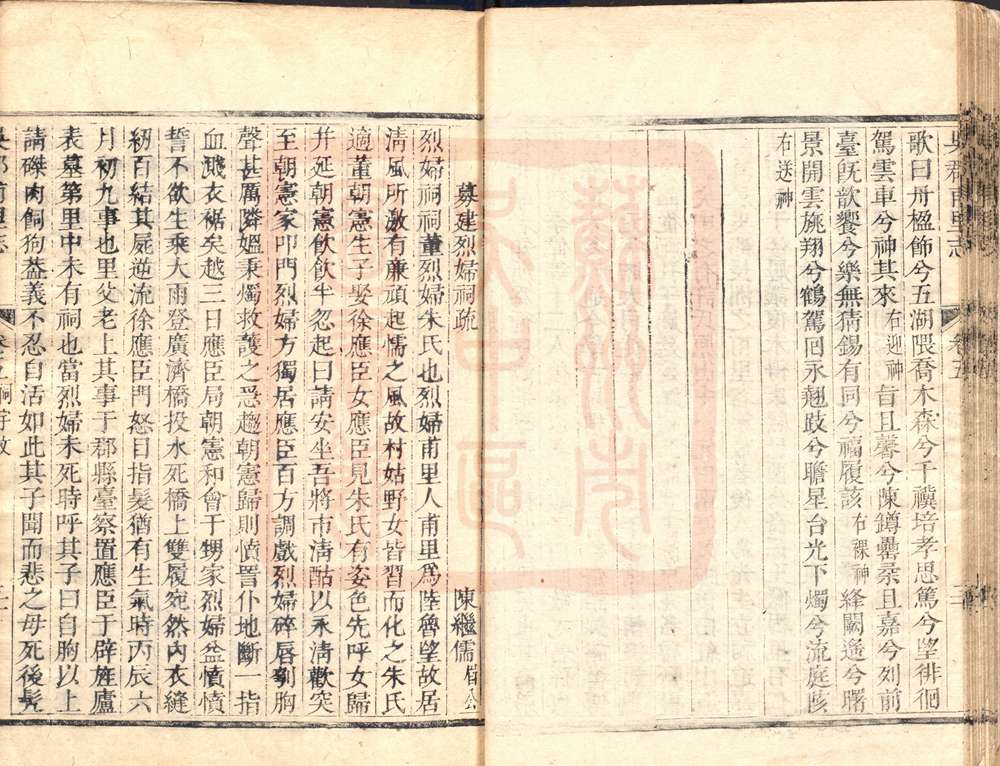 吳郡甫里志 卷五
歌曰丹楹飾兮五湖隈喬木森兮千䙰培孝思篤兮望徘徊
駕雲車兮神其來右迎神旨且馨兮陳鐏罍柔且嘉兮列前
臺旣歆饗兮樂無猜錫有同兮福履該右祼神絳闕遙兮曙
景開雲旐翔兮鶴駕回永翹跂兮瞻星台光下燭兮流庭陔
右送神
募建烈婦祠疏 陳繼儒眉公
烈婦祠祠董烈婦朱氏也烈婦甫里人甫里爲陸魯望故居
淸風所激有亷頑起懦之風故村姑野女皆習而化之朱氏
適董朝憲生子娶徐應臣女應臣見朱氏有姿色先呼女歸
并延朝憲飮飮半忽起曰請安坐吾將市淸酤以永淸歡突
至朝憲家叩門烈婦方獨居應臣百方調戲烈婦碎唇剺胸
聲甚厲隣媼秉燭救護之爲趨朝憲歸則憤詈仆地斷一指
血濺衣裾矣越三日應臣局朝憲和會于甥家烈婦益憤憤
誓不欲生乘大雨登廣濟橋投水死橋上雙履宛然內衣縫
紉百結其屍逆流徐應臣門怒目指髮猶有生氣時丙辰六
月初九事也里父老上其事于郡縣臺察置應臣于辟旌廬
表墓第里中未有祠也當烈婦未死時呼其子曰自胸以上
請磔肉飼狗葢義不忍自活如此其子聞而悲之母死後髡
吳郡甫里志 卷之五祠宇攷